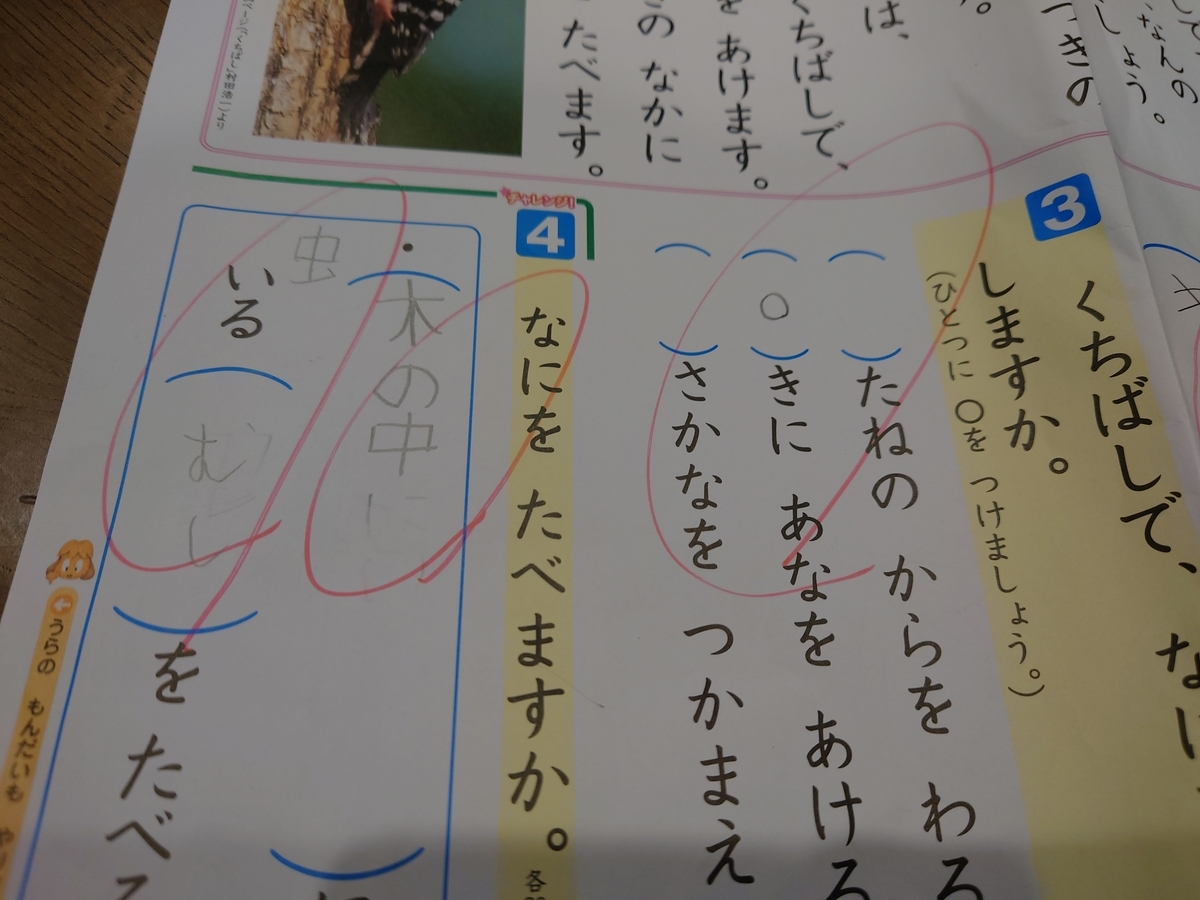 つきの
は、
くちばしで、
を あけます。
の なかに
たべます。
「くちばし」村田浩一より
3
くちばしで、
しますか。
(ひとつに ○を つけましょう。)
( )たねの からを わる
(○)きに あなを あける
( )さかなを つかまえ
チャレンジ!
4
なにを たべますか。
各
・(木の中に)
虫
いる(むし)を たべる
うらの もんだいも